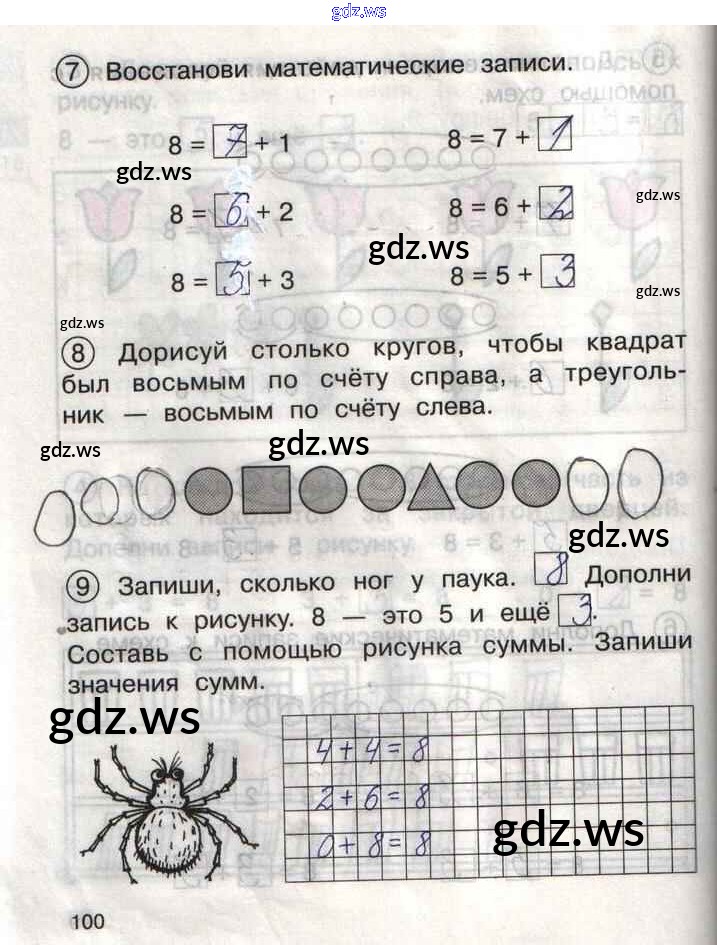 gdz.ws
7 Восстанови математические записи.
8 = 7 + 1
8 = 7 + 1
gdz.ws
8 = 6 + 2
8 = 6 + 2
gdz.ws
gdz.ws
8 = 5 + 3
8 = 5 + 3
gdz.ws
gdz.ws
8 Дорисуй столько кругов, чтобы квадрат
был восьмым по счёту справа, а треуголь-
ник — восьмым по счёту слева.
gdz.ws
gdz.ws
gdz.ws
9 Запиши, сколько ног у паука. 8 Дополни
запись к рисунку. 8 — это 5 и ещё 3.
Составь с помощью рисунка суммы. Запиши
значения сумм.
gdz.ws
4 + 4 = 8
2 + 6 = 8
gdz.ws
0 + 8 = 8
100